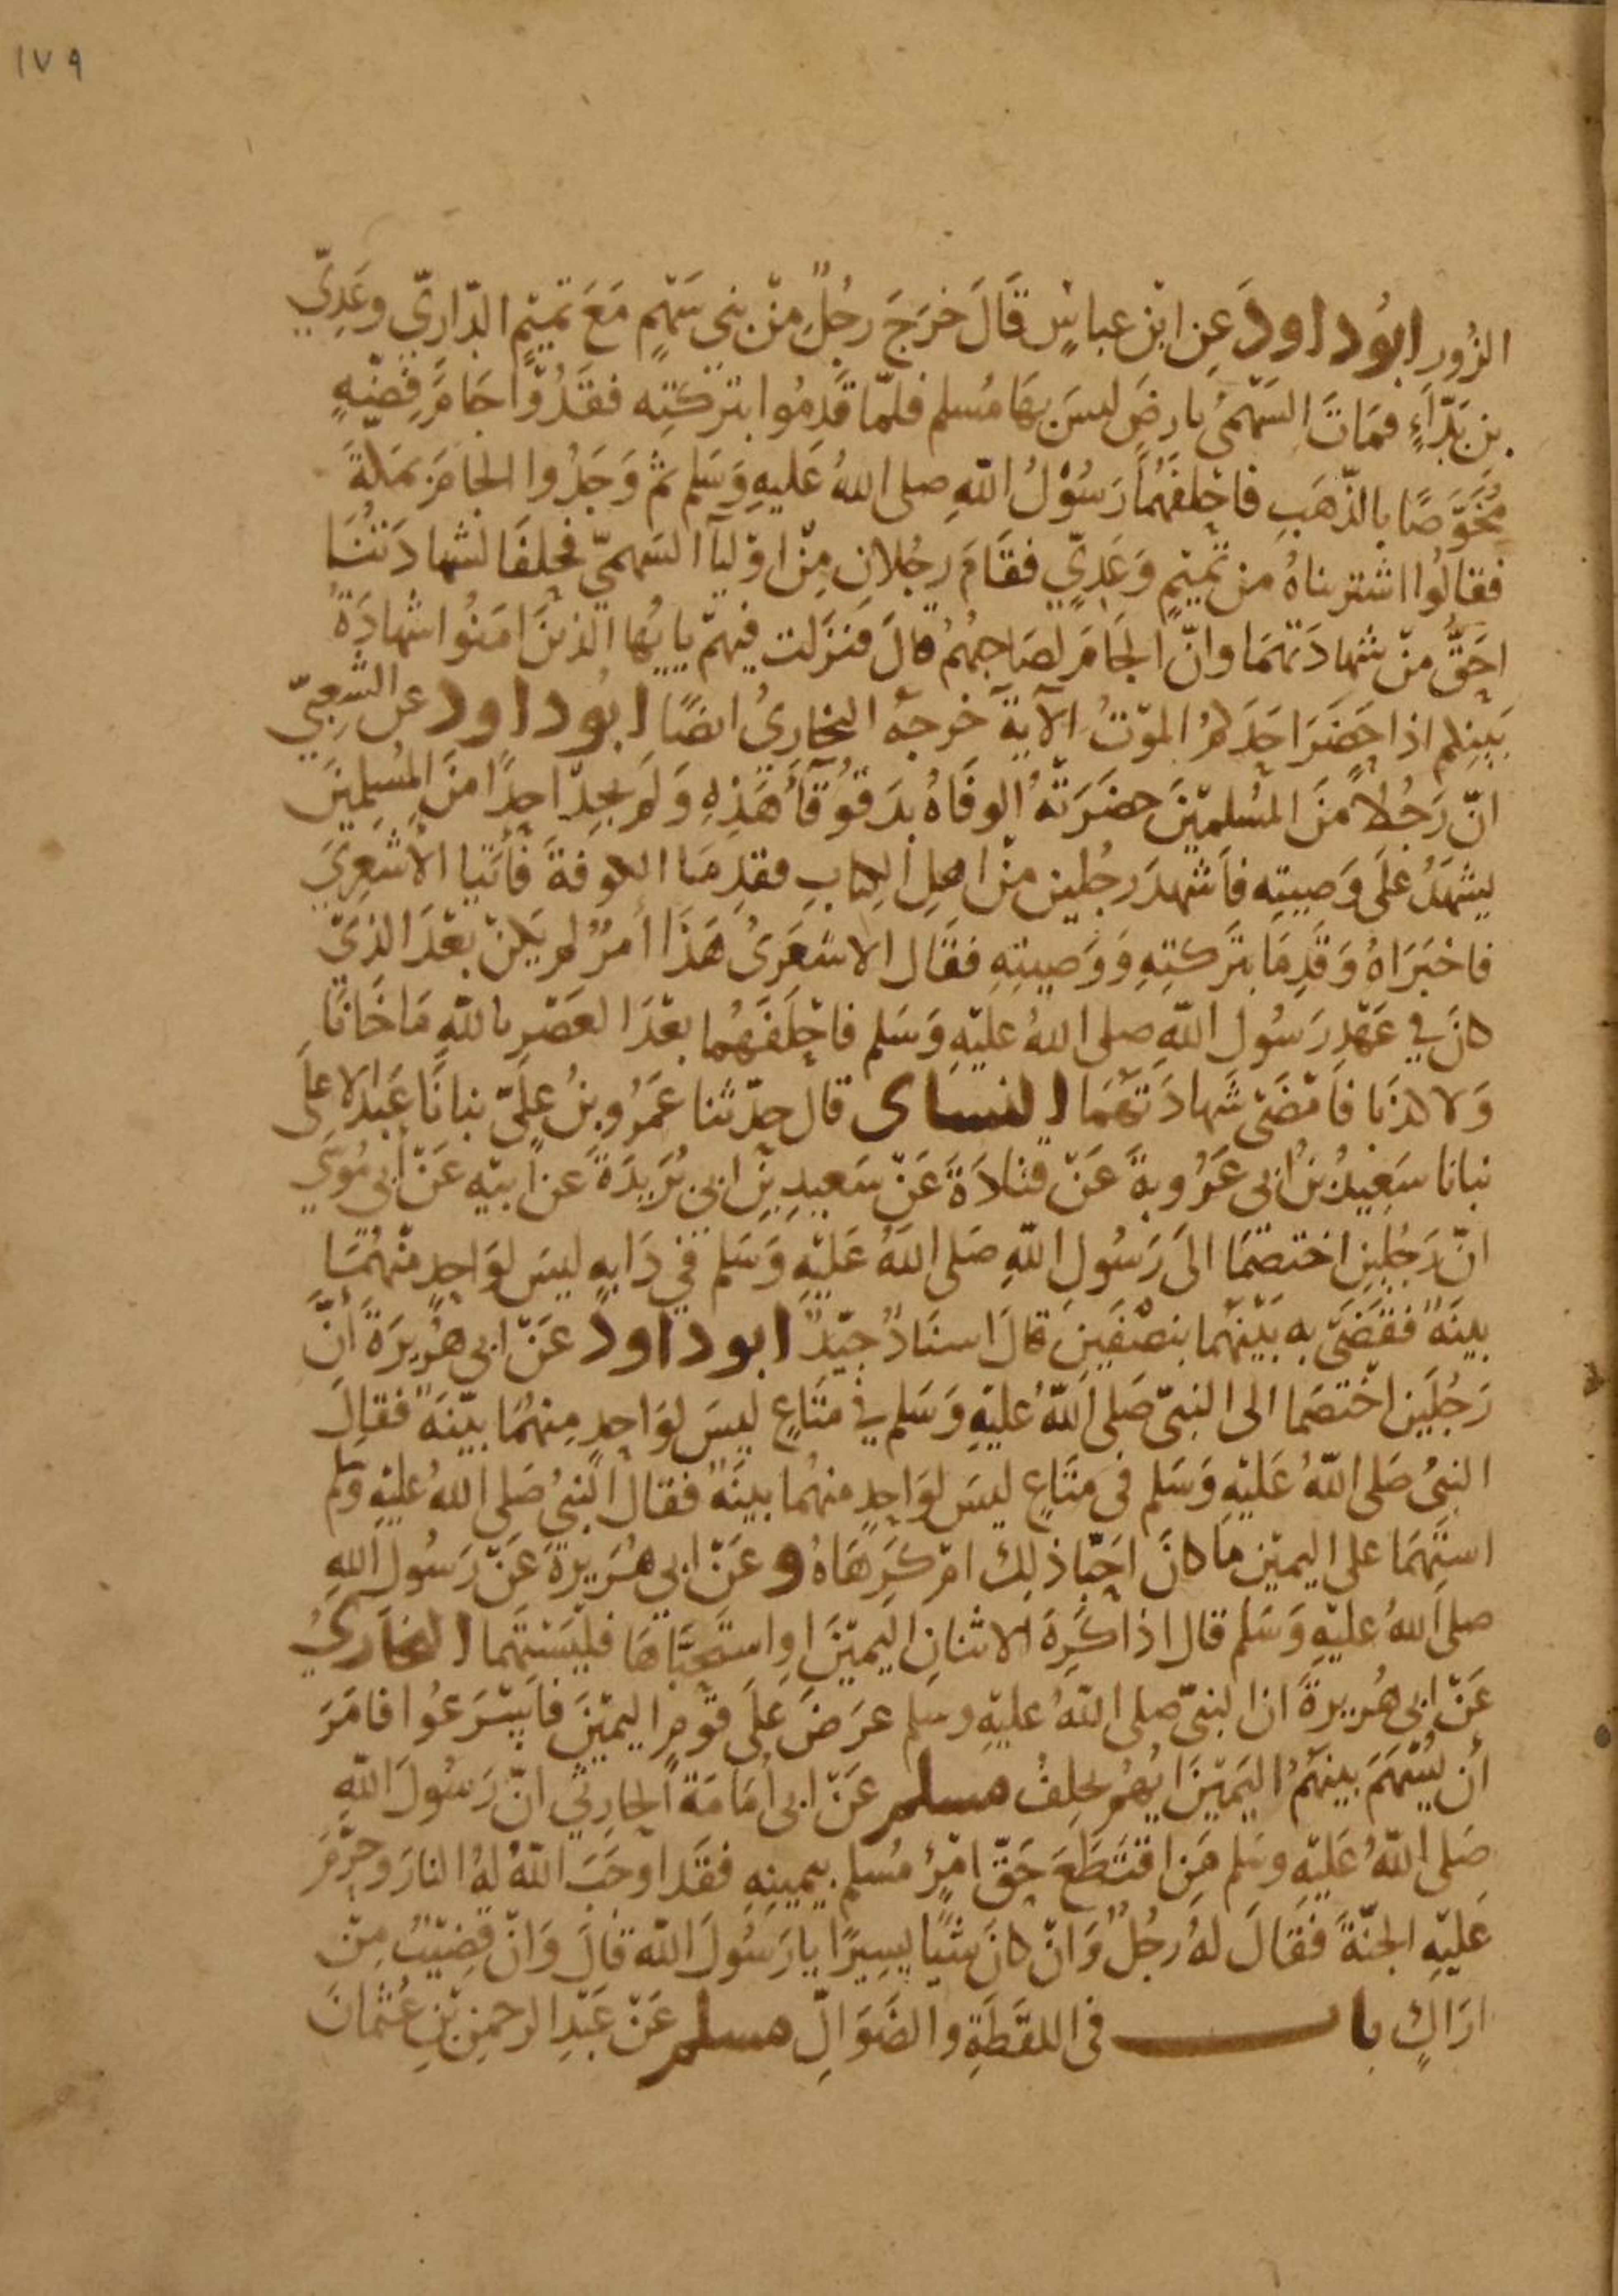 ١٧٩
الزُور ابوُداود عَنِ ابْنِ عباسٍ قَالَ خرَجَ رجُلٌ مِنْ بني سَهْمٍ مَعَ تمَيْمٍ الدّاريّ وعَدِيّ
بن بَدّاءٍ فمَاتَ السَهْميُ بارضٍ ليسَ بهَا مُسلم فلمّا قَدِمُوا بتركتِه فقدُوا جَامَ فِضّةٍ
مُخَوَّصًا بالذّهَبِ فاحْلفَهُمَا رَسُوْلُ اللهِ صلى اللهُ عَليهِ وَسَلم ثمّ وَجَدُوا الجَامَ بمَكّةَ
فقالُوا اشتريناهُ من تميْمٍ وَعَدِيّ فقَامَ رجُلانِ مِنْ اوْليآ السَهميّ فحَلفَا لشهادَتُنَا
احَقُّ مِنْ شهادَتهمَا وانّ الجَامَ لصَاحِبهُمْ قالَ فنَزَلت فيهمْ يا يها الذينَ امَنُوا شهادَةُ
بَيْنِكم اذا حَضَرَ احَدَكمُ الموْتُ الآيَةَ خرجَهُ البخاريُ ايضًا ابُوداود عن الشّعبيّ
انّ رَجُلاً مِنَ المُسْلميْنَ حضَرَتهُ الوفَاهُ بدَقُوقآءَ هَذِهِ وَلم يجِدْ احدًا منَ المُسْلِمينَ
يشهَدُ علَى وَصيتِه فاَشهدَ رجُلين منْ اهلِ الكتابِ فقدِمَا الكوفةَ فأتَيا الأشعِريَ
فاخبَرَاهُ وَقَدِمَا بترَكتِهِ وَوَصيتِهِ فقَال الاشعَرىُ هَذَا أمرٌ لم يَكنْ بعْدَ الذيْ
كانَ في عَهْدِ رَسُول اللهِ صلى اللهُ عليْهِ وَسَلم فاحْلَفَهُما بعْدَ العَصْرِ باللهِ مَا خَانَا
وَلا كذبَا فأمْضَى شَهادَتَهُمَا النساى قال حدّثنا عَمْرُو بنُ علِيّ نبانَا عَبْد الاعلَى
نبانا سَعِيدُ بنُ ابى عَرُوبةَ عَنْ قتادَةَ عَنْ سَعيدِ بْنِ ابي بُرَيدَةَ عن ابيْه عَنْ ابى مُوسَى
انّ رَجُلينِ اختصمَا الىَ رَسُولِ اللهِ صَلى اللهُ عَليْهِ وَسَلم في دَابةٍ ليسَ لوَاحدٍ منْهُمَا
بينَةٌ فقَضَى بهِ بَيْنَهُما بنصْفَينِ قالَ اسنَادٌ جيّدٌ ابوداود عَنْ ابي هُرَيرَةَ أنّ
رَجُلَين اخْتصَما الى النبيّ صَلى اللهُ عليْهِ وَسَلم في متَاعٍ ليسَ لوَاحدٍ مِنهُمَا بيّنَةٌ فقالَ
النبيُ صَلى اللهُ عَليْهِ وَسَلم فى متَاعٍ ليسَ لوَاحدٍ منهُما بينَةٌ فقالَ النّبيُ صَلى اللهُ عليْهِ وَسَلم
استَهمَا على اليميْن مَا كانَ احَبّا ذلِكَ امْ كَرِهَاهُ وعَنْ ابى هُرَيرَةَ عَنْ رَسُول اللهِ
صلى اللهُ عليْهِ وَسَلم قال اذا كَرِهَ الاثنانِ اليميْنَ اواستَحَبّاهَا فليَسْتَهما البخاريُ
عَنْ ابي هُريرةَ ان النبيّ صلى اللهُ عليْهِ وسلم عرَضَ عَلَى قوْمٍ اليميْنَ فأسْرَعُوا فامَرَ
أن يُسْهَمَ بينهُمْ اليَميْنَ ايُهُم يحلِفُ مسلم عَنْ ابى أمَامَةَ الحَارِثيّ انّ رَسُولَ اللهِ
صَلى اللهُ عَليْهِ وسَلم مَنِ اقتَطَعَ حَقّ امْرٍئ مُسْلمٍ بيمينِهِ فقَد اوجَبَ اللهُ لهُ النارَ وحَرّمَ
عَليْهِ الجنّةَ فقَالَ لهُ رجُلٌ وَانْ كانَ شيْئًا يسِيرًا يا رَسُولَ اللهِ قالَ وَانْ قضيْبٌ مِنْ
ارَاكٍ بابـــــــــ في اللقَطَةِ والضَوَالّ مسلم عَنْ عَبْدِ الرحمنِ بْنِ عُثمانَ